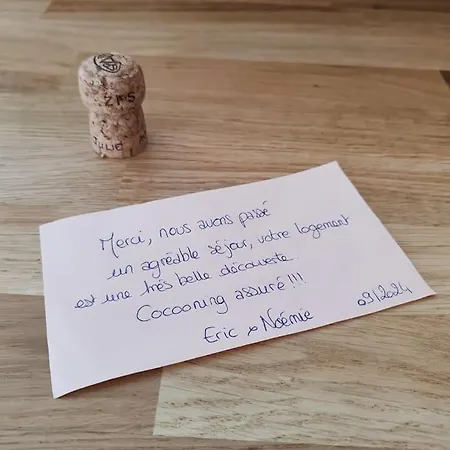 Merci, nous avons passé
un agréable séjour, votre logement
est une très belle découverte.
Cocooning assuré !!!
Eric & Noémie
09/2024